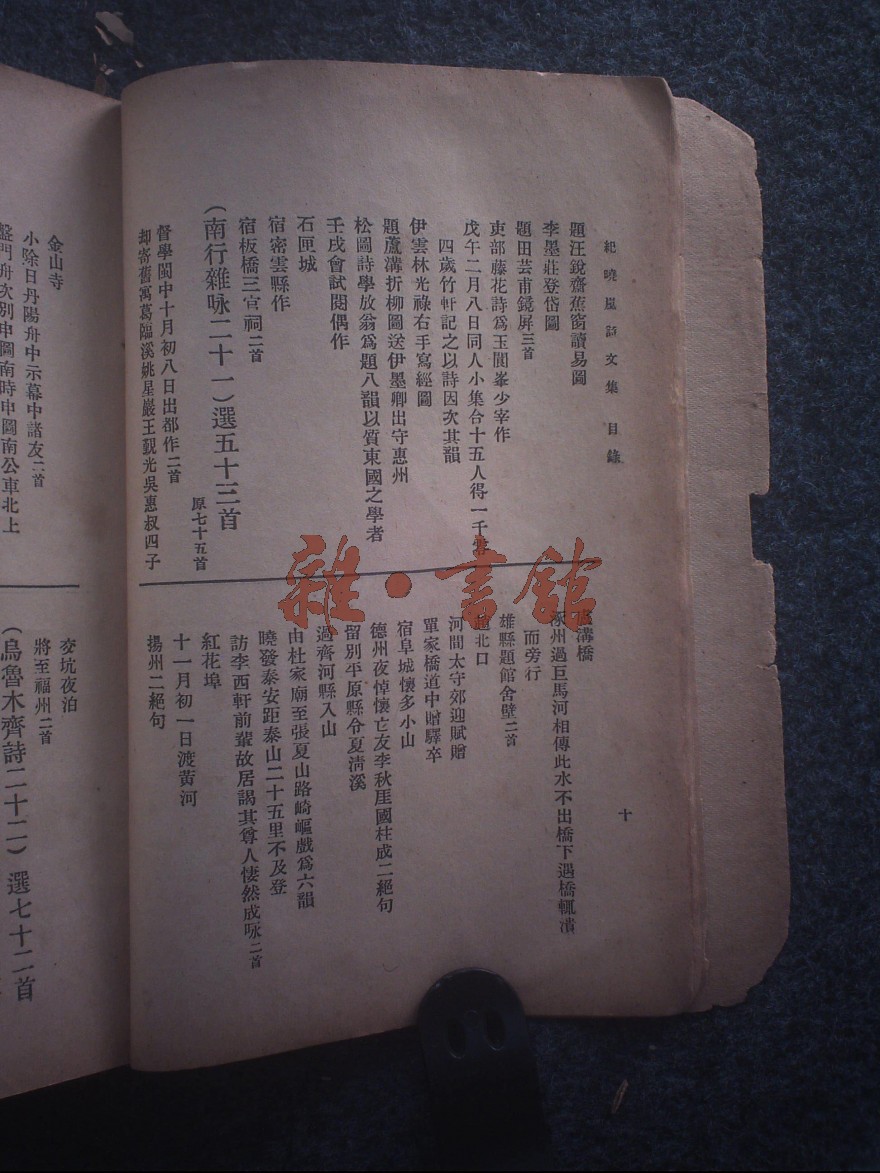 紀曉嵐詩文集 目錄
十
題汪銳齋蕉窗讀易圖
李墨莊登岱圖
題田芸甫鏡屏三首
吏部藤花詩爲玉閬峯少宰作
戊午二月八日同人小集合十五人得一千零
四歲竹軒記之以詩因次其韻
伊雲林光祿右手寫經圖
題蘆溝折柳圖送伊墨卿出守惠州
松園詩學放翁爲題八韻以質東國之學者
壬戌會試閱偶作
石匣城
宿密雲縣作
宿板橋三官祠二首
(南行雜咏二十一)選五十三首
原七十五首
督學閩中十月初八日出都作二首
却寄舊寓葛臨溪姚星巖王覲光吳惠叔四子
溝橋
涿州過巨馬河相傳此水不出橋下遇橋輒潰
而旁行
雄縣題館舍壁二首
北口
河間太守郊迎賦贈
單家橋道中贈驛卒
宿阜城懷多小山
德州夜悼懷亡友李秋厓國柱成二絕句
留別平原縣令夏清溪
過齊河縣入山
由杜家廟至張夏山路崎嶇戲爲六韻
曉發泰安距泰山二十五里不及登
訪李西軒前輩故居謁其尊人悽然成咏二首
紅花埠
十一月初一日渡黃河
揚州二絕句
金山寺
小除日丹陽舟中示幕中諸友二首
盤門舟次別申圖南時申圖南公車北上
夜泊
將至福州二首
(烏魯木齊詩二十二)選七十二首
雜·書館